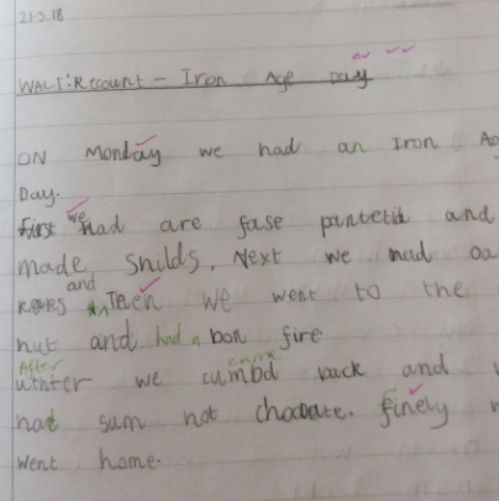 21.5.18
WALT: Recount - Iron Age Day
ON Monday we had an Iron Ag
Day.
first we had are fase pantetid and
made shilds. Next we mad oa
and
Then we went to the
hut and had a bon fire
After came
we cumbd back and
hat sum hot chocate. finely
went home.